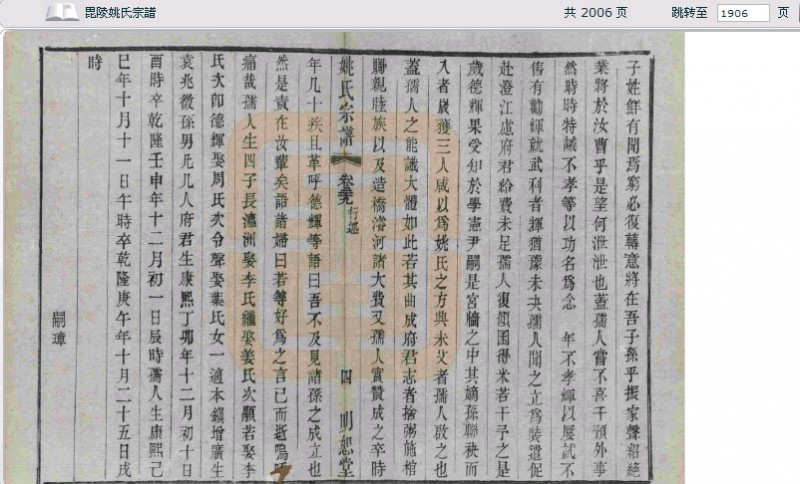 毘陵姚氏宗譜
共 2006 页
跳转至 1906 页
子姓鮮有聞焉窮必復幕意將在吾子孫乎振家聲紹絕
業將於汝曹乎是望何泄泄也蓋孺人嘗不喜干預外事
然時時特誡不孝等以功名為念 年不孝輝以屢試不
售有勸輝就武科者輝猶豫未决孺人聞之立為裝遣促
赴澄江處府君給費未足孺人復傾囷得米若干予之是
歲德輝果受知於學憲尹嗣是宮牆之中其嫡孫聯袂而
入者歲獲三人咸以為姚氏之方興未艾者孺人啟之也
蓋孺人之能識大體如此若其曲成府君志者捨粥施棺
賙親睦族以及造橋濬河諸大費又孺人實贊成之卒時
姚氏宗譜 卷 行述 四 明恕堂
年几十疾且革呼德輝等語曰吾不及見諸孫之成立也
然是責在汝輩矣語諸婦曰若等好為之言已而逝嗚呼
痛哉孺人生四子長瀛洲娶李氏繼娶姜氏次顯若娶李
氏次卽德輝娶周氏次令聲娶葉氏女一適本鎮增廣生
袁兆微孫男凡几人府君生康熙丁卯年十二月初十日
酉時卒乾隆壬申年十二月初一日辰時孺人生康熙己
巳年十月十一日午時卒乾隆庚午年十月二十五日戌
時
嗣璋